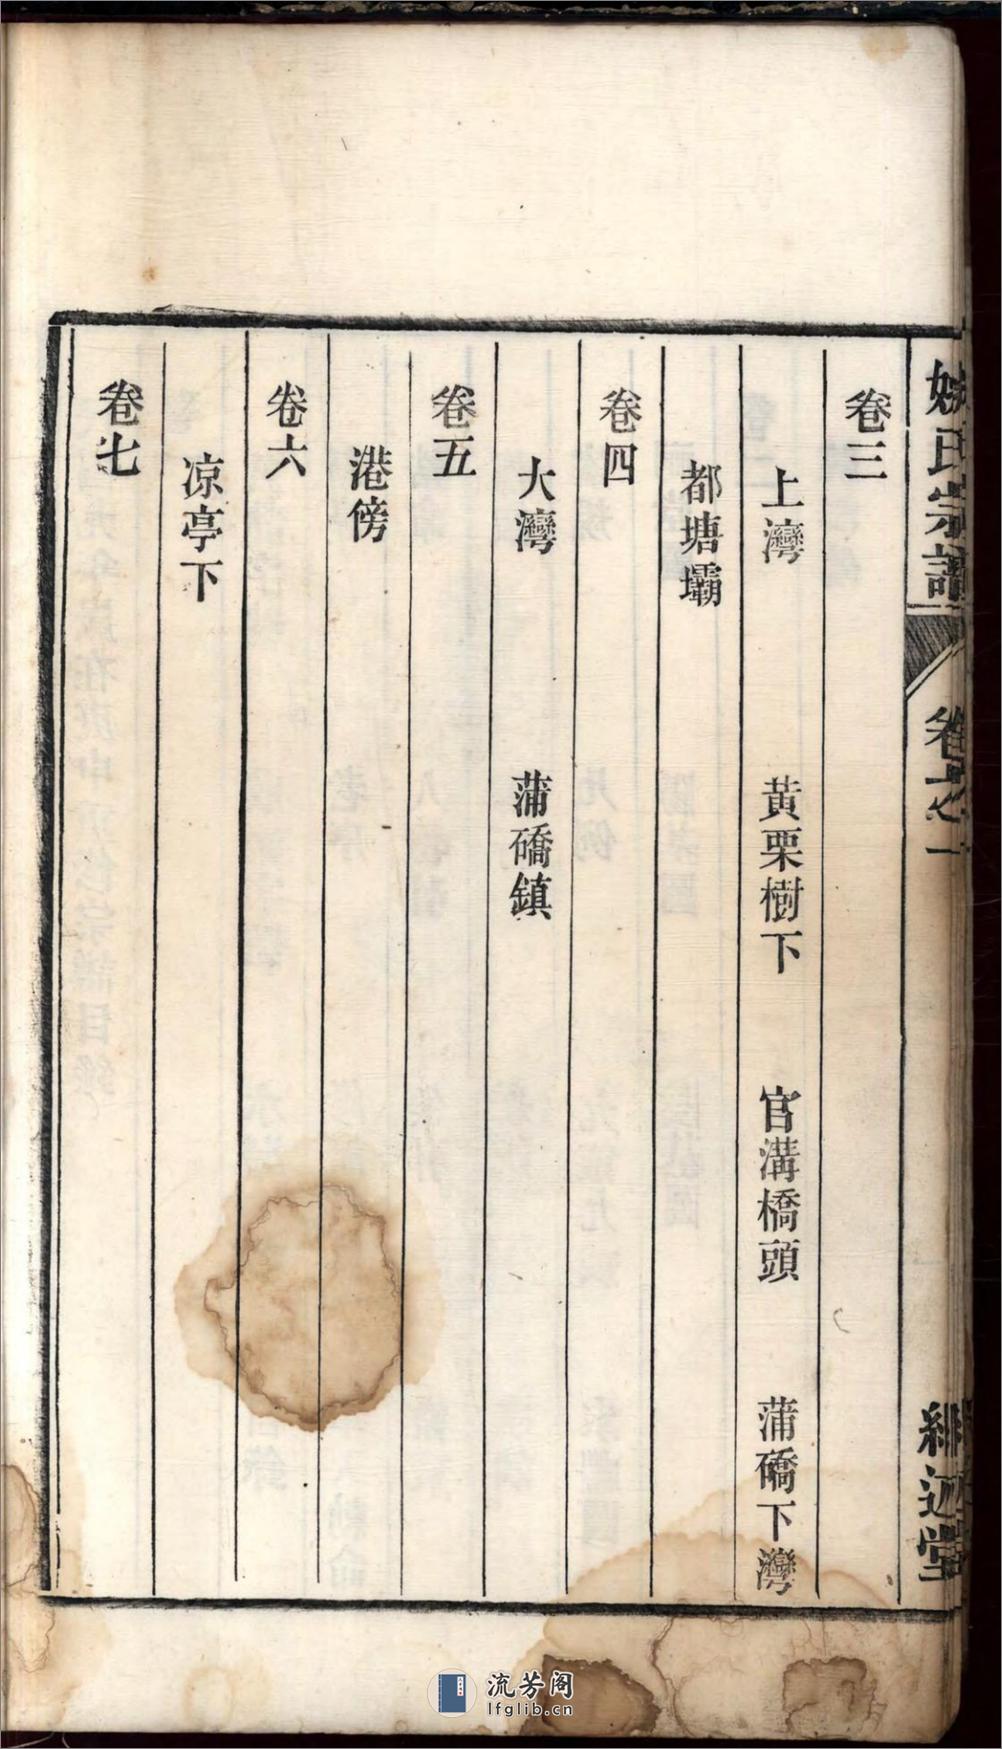 姚氏宗譜 卷之一 堂
卷三
上灣 黃栗樹下 官溝橋頭 蒲礄下灣
都塘壩
卷四
大灣 蒲礄鎮
卷五
港傍
卷六
凉亭下
卷七
流芳阁
lfglib.cn